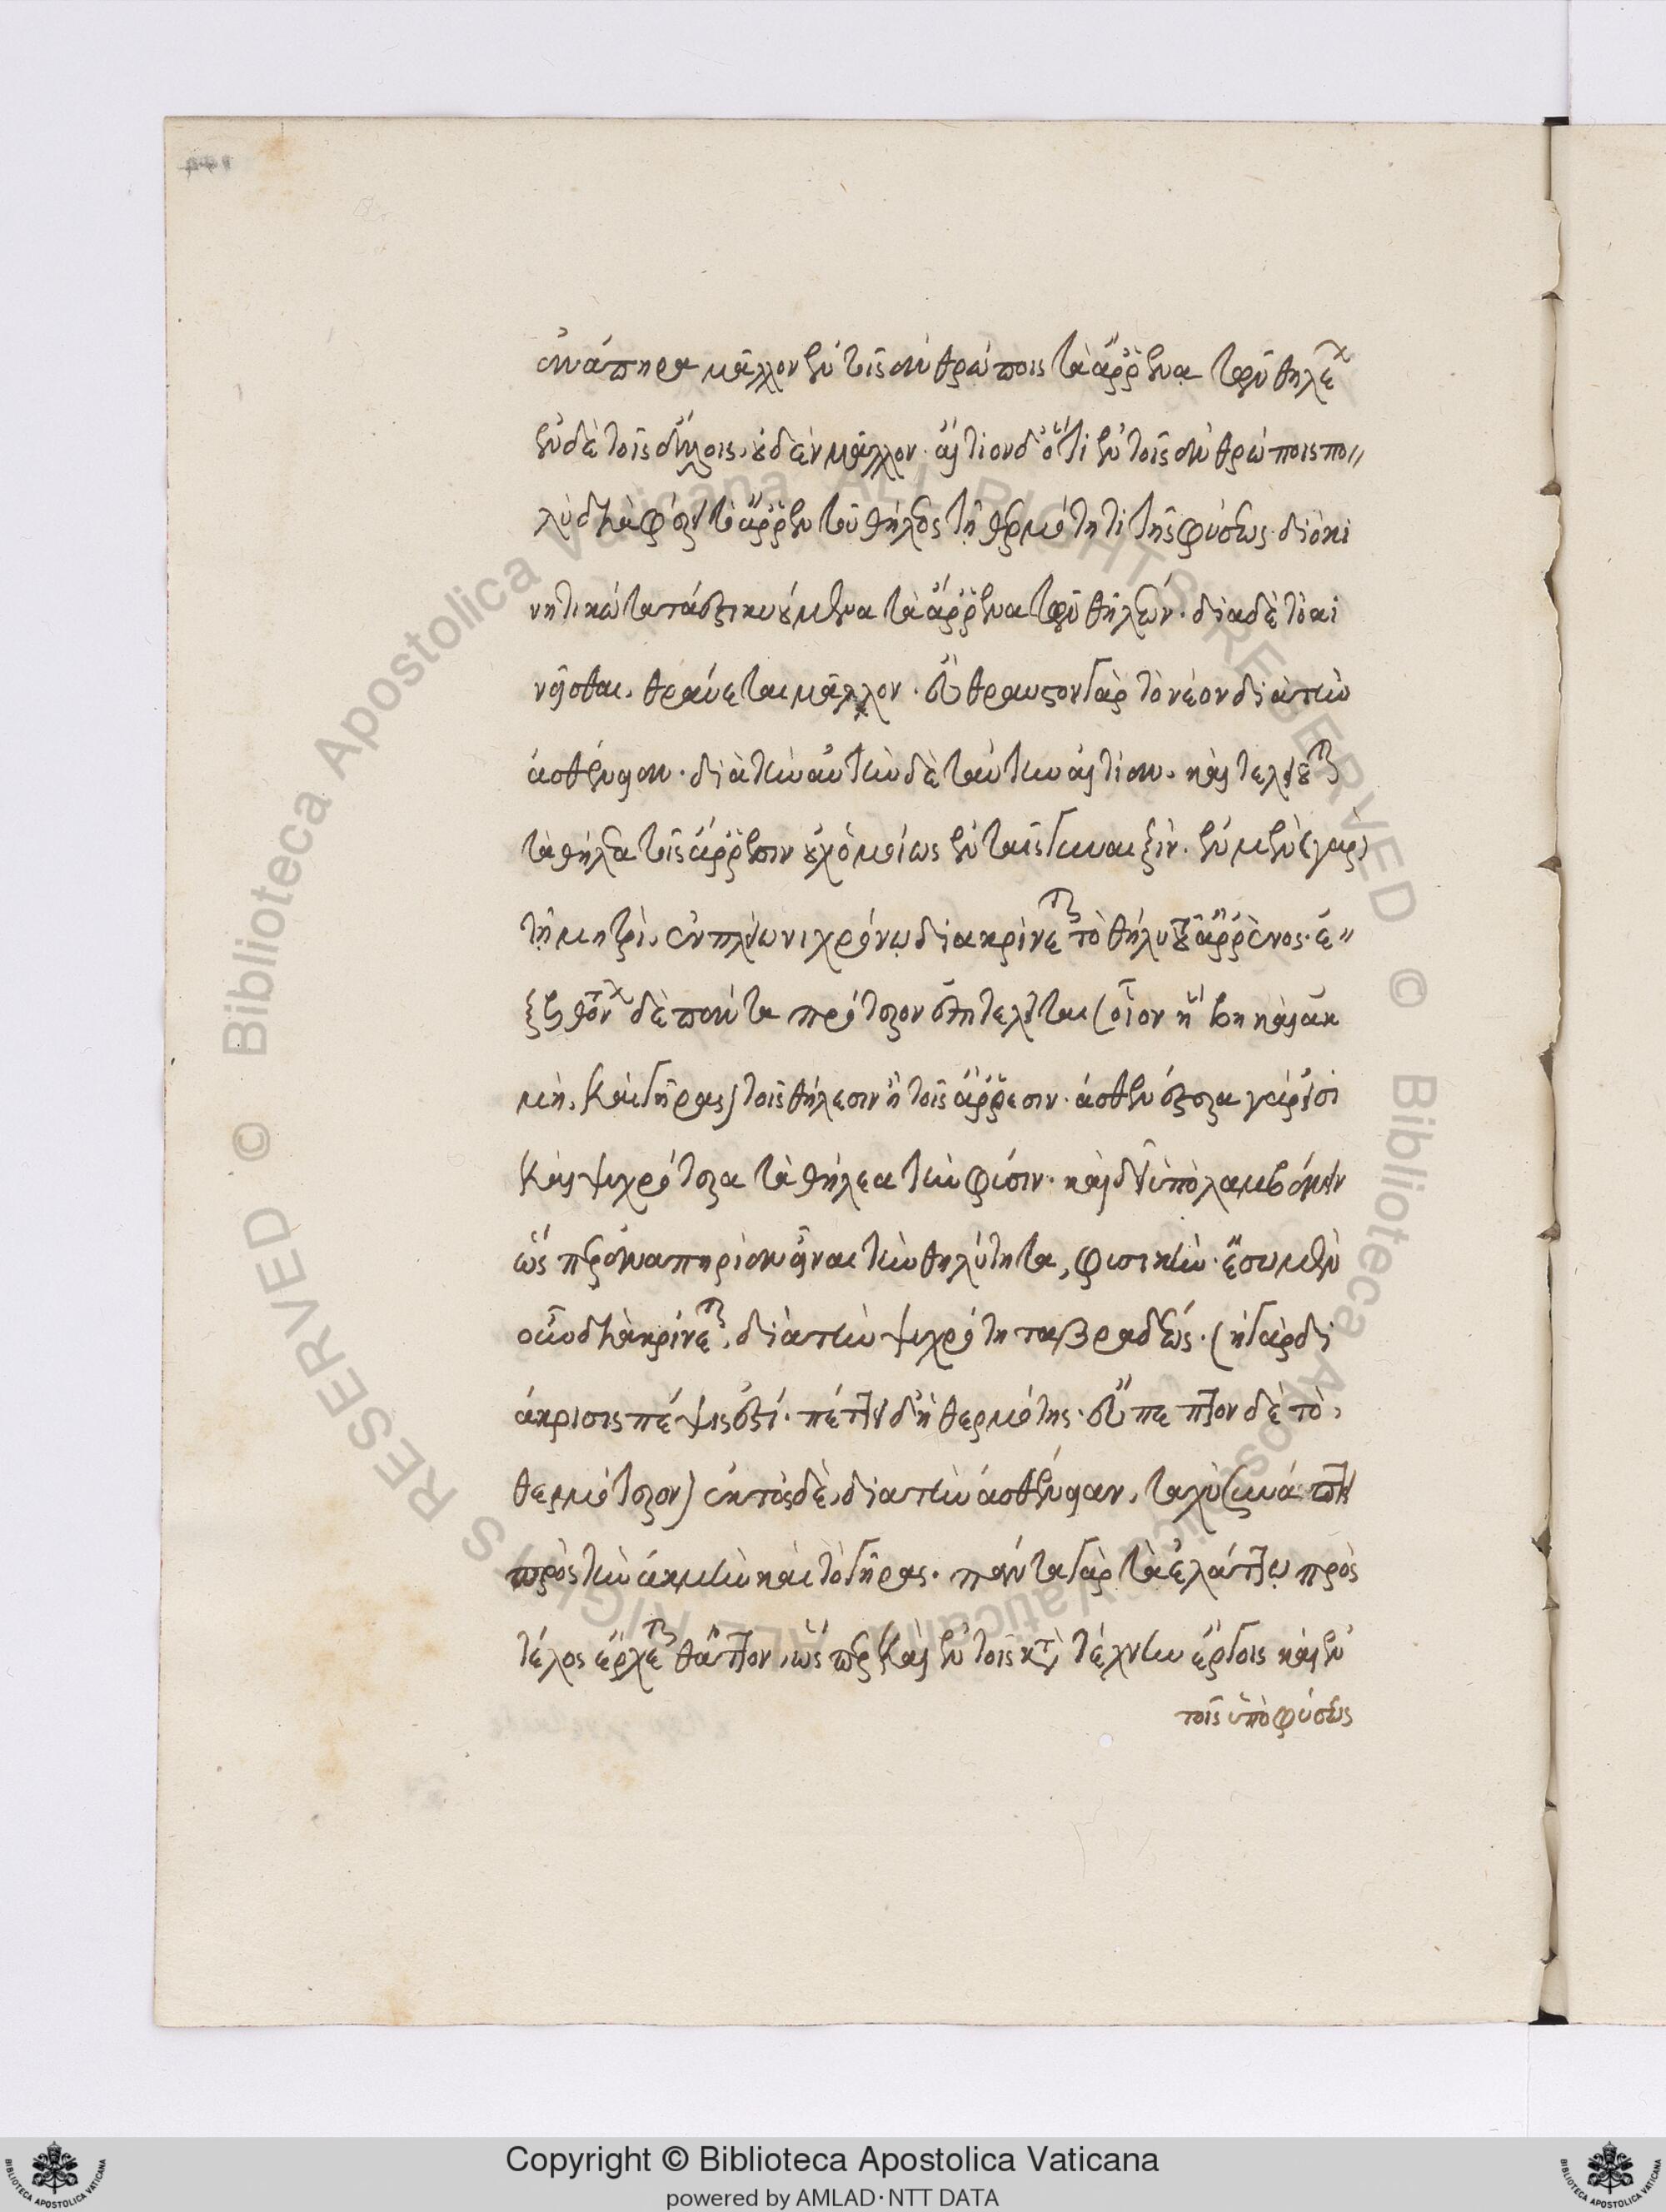 ἀνάπηρα μᾶλλον ἐν τοῖς ἀνθρώποις τὰ ἄρρενα τῶν θηλέων
ἐν δὲ τοῖς ἄλλοις, οὐδὲν μᾶλλον. αἴτιον δ' ὅτι ἐν τοῖς ἀνθρώποις πο
λὺ διαφέρει τὸ ἄρρεν τοῦ θήλεος τῇ θερμότητι τῆς φύσεως. διὸ κι
νητικώτατά ἐστι κυούμενα τὰ ἄρρενα τῶν θηλέων. διὰ δὲ τὸ κι
νεῖσθαι, θραύεται μᾶλλον. εὔθραυστον γὰρ τὸ νέον διὰ τὴν
ἀσθένειαν. διὰ τὴν αὐτὴν δὲ ταύτην αἰτίαν, καὶ τελειοῦται
τὰ θήλεα τοῖς ἄρρεσιν οὐχ ὁμοίως ἐν ταῖς γυναιξίν. ἐν μὲν (γὰρ)
τῇ μητρὶ, ἐν πλείωνι χρόνῳ διακρίνεται τὸ θῆλυ τοῦ ἄρρενος. ἐ
ξελθόντων δὲ πάντα πρότερον ἐπιτελεῖται (οἷον ἥβη καὶ ἀκ
μὴ, καὶ γῆρας) τοῖς θήλεσιν ἢ τοῖς ἄρρεσιν. ἀσθενέστερα γάρ εἰσι
καὶ ψυχρότερα τὰ θήλεα τὴν φύσιν. καὶ δεῖ ὑπολαμβάνειν
ὥσπερ ἀναπηρίαν εἶναι τὴν θηλύτητα, φυσικήν. ἔσω μὲν
οὖν διακρίνεται, διὰ τὴν ψυχρότητα βραδέως. (ἡ γὰρ δι
άκρισις πέψις ἐστί. πέττει δ' ἡ θερμότης. εὔπεπτον δὲ τὸ,
θερμότερον) ἐκτὸς δὲ, διὰ τὴν ἀσθένειαν, ταχὺ συνάπτει
πρὸς τὴν ἀκμὴν καὶ τὸ γῆρας. πάντα γὰρ τὰ ἐλάττω πρὸς
τέλος ἔρχεται θᾶττον, ὥσπερ καὶ ἐν τοῖς κατὰ τέχνην ἔργοις καὶ ἐν
τοῖς ὑπὸ φύσεως
Copyright © Biblioteca Apostolica Vaticana
powered by AMLAD·NTT DATA